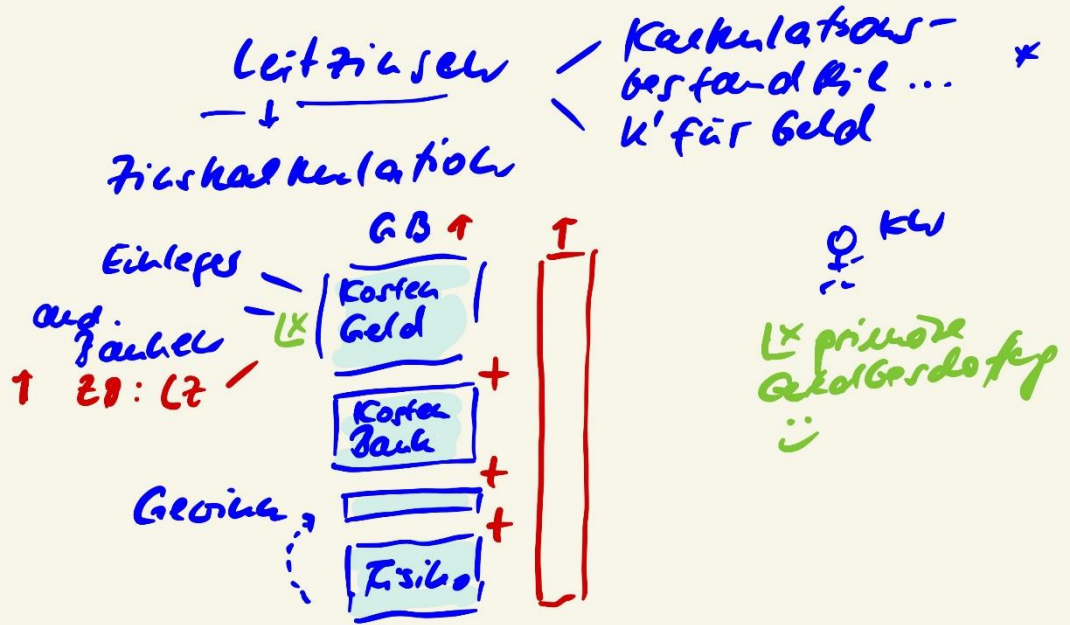 Leitzinsen
Kalkulations-
bestandteil ... *
K' für Geld
Zinskalkulation
GB ↑ ↑
Einleger
Kosten
Geld
and.
Banken
↑ ZB: LZ
+
Kosten
Bank
+
Gewinn
+
Risiko
KN
L* primäre
Geldbeschaffg